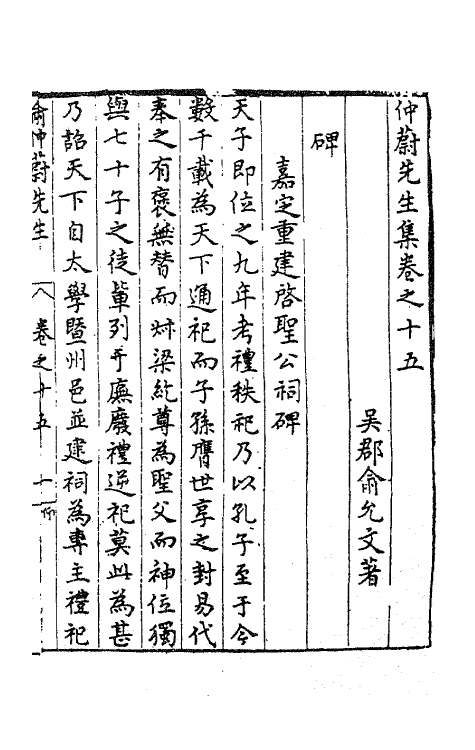 仲蔚先生集卷之十五
吴郡俞允文著
碑
嘉定重建啓聖公祠碑
天子即位之九年考禮秩祀乃以孔子至于今
數千載為天下通祀而子孫膺世享之封易代
奉之有褒無替而𠦑梁紇尊為聖父而神位獨
與七十子之徒軰列于廡廢禮逆祀莫此為甚
乃詔天下自太學暨州邑並建祠為專主禮祀
俞仲蔚先生 卷之十五 一